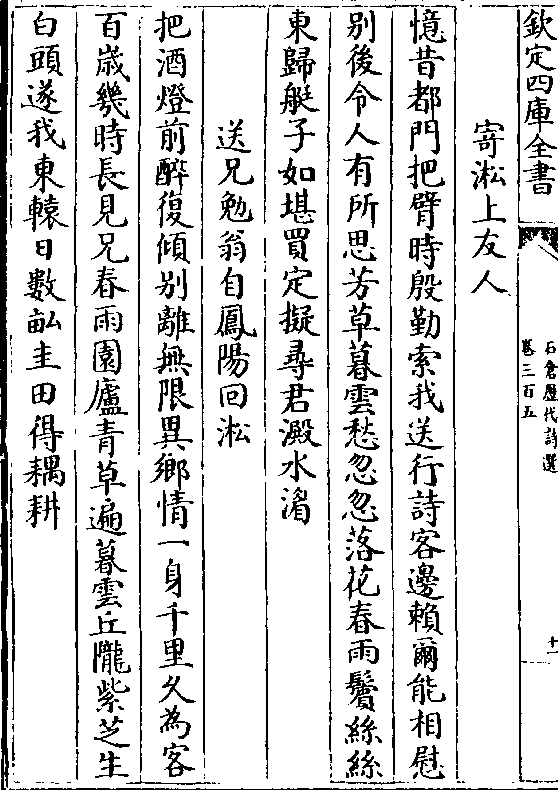 欽定四庫全書
石倉歷代詩選
卷三百五
十一
寄淞上友人
憶昔都門把臂時殷勤索我送行詩客邊賴爾能相慰
别後令人有所思芳草暮雲愁忽忽落花春雨鬢絲絲
東歸艇子如堪買定擬尋君澱水湄
送兄勉翁自鳳陽回淞
把酒燈前醉復傾别離無限異鄉情一身千里久為客
百歲幾時長見兄春雨園廬青草遍暮雲丘隴紫芝生
白頭遂我東轅日數畝圭田得耦耕